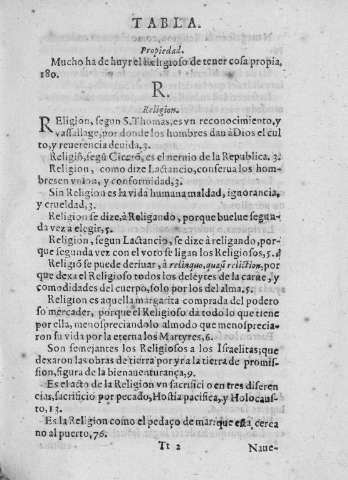 TABLA.
Propiedad.
Mucho ha de huyr el Religioso de tener cosa propia,
180.
R.
Religion.
REligion, segun S. Thomas, es vn reconocimiento, y
vassallage, por donde los hombres dan à Dios el cul
to, y reuerencia deuida, 3.
Religiõ, segũ Cicerõ, es el neruio de la Republica. 3.
Religion, como dize Lactancio, conserua los hom-
bres en vnion, y conformidad, 3.
Sin Religion es la vida humana maldad, ignorancia,
y crueldad, 3.
Religion se dize, à Religando, porque buelue segun-
da vez a elegir, 5.
Religion, segun Lactancio, se dize à religando, por-
que segunda vez con el voto se ligan los Religiosos, 5.
Religiõ se puede deriuar, à relinquo, quasi reliction, por
que dexa el Religioso todos los deleytes de la carne, y
comodidades del cuerpo, solo por los del alma, 5.
Religion es aquella margarita comprada del podero
so mercader, porque el Religioso da todo lo que tiene
por ella, menospreciando al modo que menosprecia-
ron su vida por la eterna los Martyres, 6.
Son semejantes los Religiosos a los Israelitas; que
dexaron las obras de tierra por yr a la tierra de promis-
sion, figura de la bienauenturança, 9.
Es el acto de la Religion vn sacrificio en tres diferen
cias, sacrificio por pecado, Hostia pacifica, y Holocaus-
to, 13.
Es la Religion como el pedaço de mar que está, cerca
no al puerto, 76.
Tt 2
Naue-